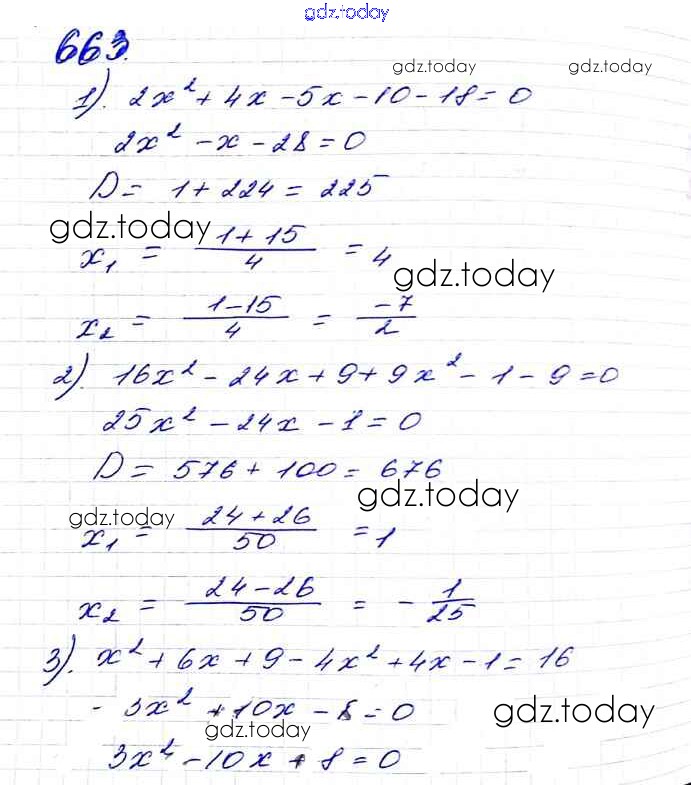 gdz.today
663.
gdz.today gdz.today
1). 2x² + 4x - 5x - 10 - 18 = 0
2x² - x - 28 = 0
D = 1 + 224 = 225
gdz.today
x₁ = (1 + 15)/4 = 4
gdz.today
x₂ = (1 - 15)/4 = -7/2
2). 16x² - 24x + 9 + 9x² - 1 - 9 = 0
25x² - 24x - 1 = 0
D = 576 + 100 = 676
gdz.today
gdz.today
x₁ = (24 + 26)/50 = 1
x₂ = (24 - 26)/50 = - 1/25
3). x² + 6x + 9 - 4x² + 4x - 1 = 16
- 3x² + 10x - 8 = 0
gdz.today
gdz.today
3x² - 10x + 8 = 0